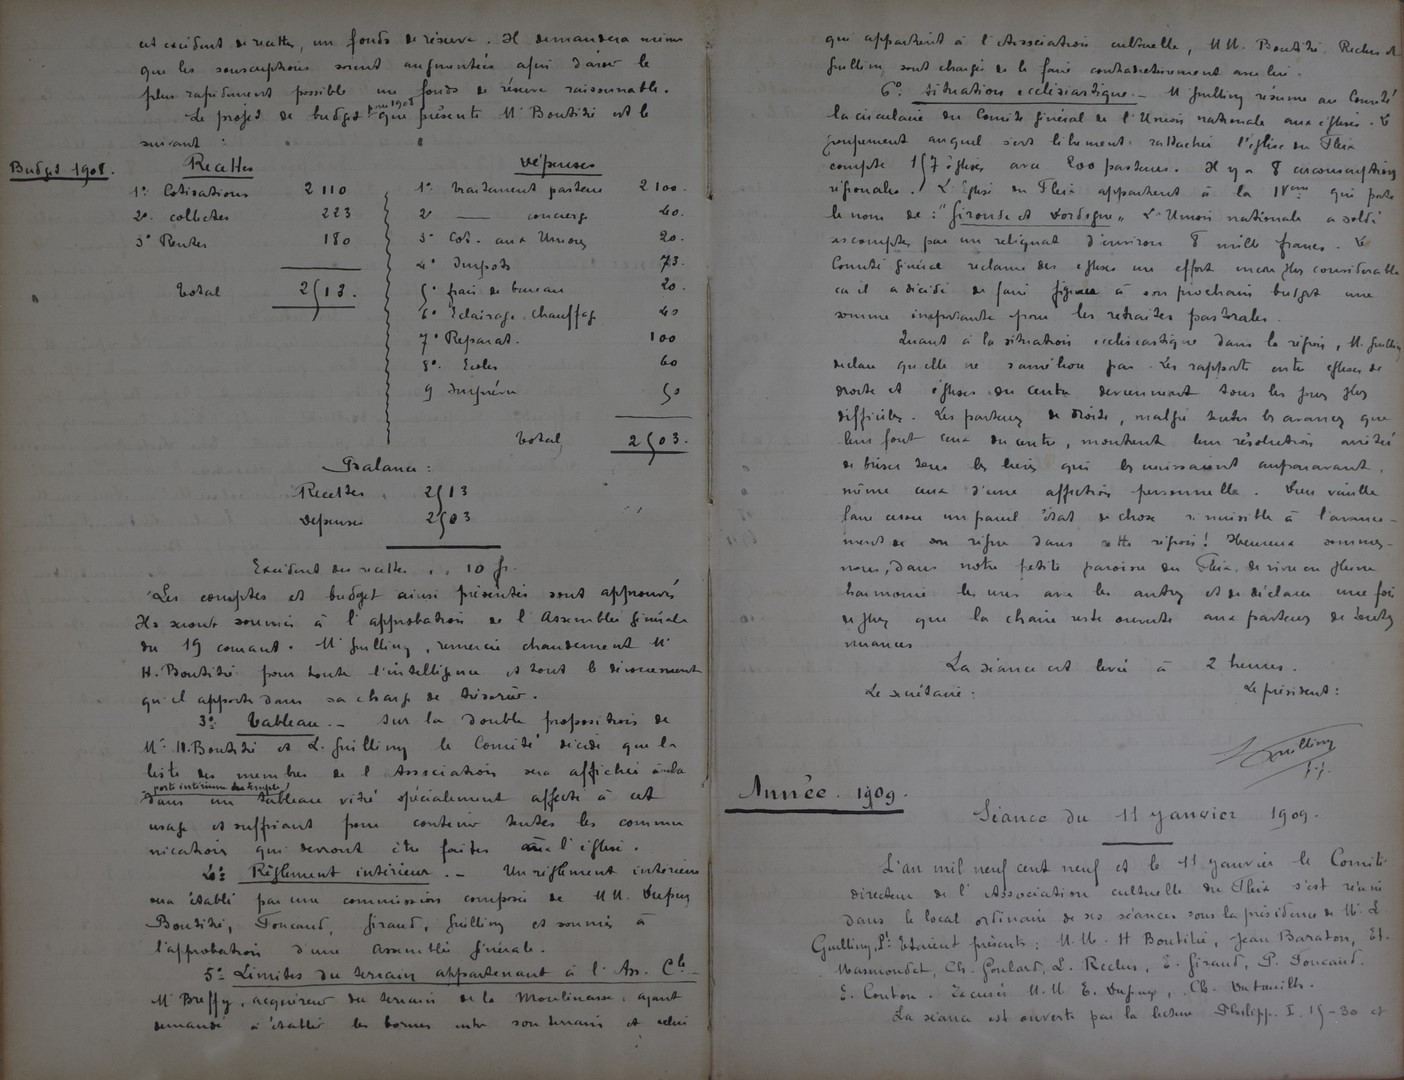 cet excédent de recettes, un fonds de réserve. Il demandera même
que les souscriptions soient augmentées afin d'avoir le
plus rapidement possible un fonds de réserve raisonnable.
Le projet de budget pour 1908 que présente Mr Boutitié est le
suivant :
Budget 1908.
Recettes
1º Cotisations 2110
2º collectes 223
3º Rentes 180
Total 2513.
Dépenses
1º traitement pasteur 2100.
2º — concierge 40.
3º Cot. aux Unions 20.
4º Impots 73.
5º frais de bureau 20.
6º Eclairage, chauffage 40
7º Réparat. 100
8º Ecoles 60
9 Imprévu 50
Total 2503.
Balance :
Recettes 2513
Dépenses 2503
Excédent des recettes . . 10 fr.
Les comptes et budget ainsi présentés sont approuvés
Ils seront soumis à l'approbation de l'Assemblée générale
du 19 courant. Mr Guilling, remercie chaudement Mr
H. Boutitié pour toute l'intelligence et tout le dévouement
qu'il apporte dans sa charge de trésorier.
3º Tableau. - Sur la double proposition de
Mrs H. Boutitié et L. Guilling le Comité décide que la
liste des membres de l'Association sera affichée à la
porte intérieure du temple
dans un tableau vitré spécialement affecté à cet
usage et suffisant pour contenir toutes les commu
nications qui devront être faites à l'église.
4º Règlement intérieur. - Un règlement intérieur
sera établi par une commission composée de M.M. Dupuy
Boutitié, Foucaud, Giraud, Guilling et soumis à
l'approbation d'une Assemblée générale.
5º Limites du terrain appartenant à l'Ass. Clle -
Mr Breffy, acquéreur du terrain de la Moulinasse, ayant
demandé à établir les bornes entre son terrain et celui
que appartient à l'Association cultuelle, M.M. Boutitié, Reclus et
Guilling sont chargés de le faire contradictoirement avec lui.
6º. Situation ecclésiastique. - Mr Guilling résume au Comité
la circulaire du Comité général de l'Union nationale aux églises. Le
groupement auquel s'est librement rattachée l'église du Fleix
compte 157 églises avec 200 pasteurs. Il y a 8 circonscriptions
régionales. L'Eglise du Fleix appartient à la IVeme qui porte
le nom de : "Gironde et Dordogne". L'Union nationale a soldé
ses comptes par un reliquat d'environ 8 mille francs. Le
Comité général réclame des églises un effort encore plus considérable
car il a décidé de faire figurer à son prochain budget une
somme importante pour les retraites pastorales.
Quant à la situation ecclésiastique dans la région, M. Guilling
déclare qu'elle ne s'améliore pas. Les rapports entre églises de
droite et églises du centre deviennent tous les jours plus
difficiles. Les pasteurs de droite, malgré toutes les avances que
leur font ceux du centre, montrent leur résolution arrêtée
de briser tous les liens qui les unissaient auparavant,
même ceux d'une affection personnelle. Dieu veuille
faire cesser un pareil état de chose si nuisible à l'avance-
ment de son règne dans cette région! Heureux sommes-
nous, dans notre petite paroisse du Fleix, de vivre en pleine
harmonie les uns avec les autres et de déclarer une fois
de plus que la chaire reste ouverte aux pasteurs de toutes
nuances
La séance est levée à 2 heures.
Le secrétaire : Le président :
L Guilling
Année 1909.
Séance du 11 Janvier 1909.
L'an mil neuf cent neuf et le 11 Janvier le Comité
directeur de l'Association cultuelle du Fleix s'est réuni
dans le local ordinaire de ses séances sous la présidence de Mr L
Guilling, Pt. Etaient présents : M.M. H Boutitié, Jean Baraton, Et.
Marmondet, Ch. Goulard, L. Reclus, E. Giraud, P. Foucaud.
E. Couton. Excusés M.M E. Dupuy, Ch. Dutauilh.
La séance est ouverte par la lecture Philipp. I. 15-30 et